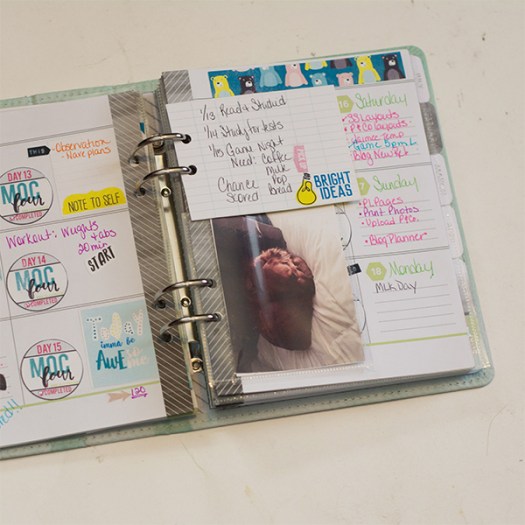 THIS
-Observation
- Nave plans
DAY 13
MOC
four
COMPLETED
NOTE TO SELF
Workout: Weights
+ abs
20 min
START
DAY 14
MOC
four
COMPLETED
DAY 15
MOC
four
COMPLETED
TODAY
imma be
AWESO
1/13 Read + Studied
1/14 Study for tests
1/15 Game Night
Need: Coffee
Milk
Chance
Scored
Bread
BRIGHT
IDEAS
16 Saturday
Game 5pm
Sunday
• PL Pages
• Print Photos
• Blog Planner
18 Monday
MLK Day